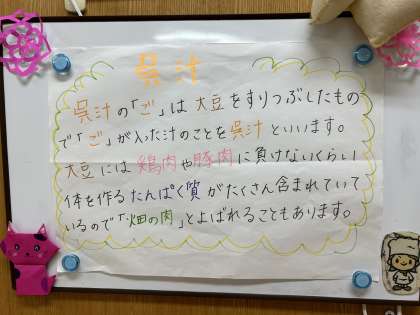 呉汁
呉汁の「ご」は大豆をすりつぶしたもの
で「ご」が入った汁のことを呉汁といいます。
大豆には鶏肉や豚肉に負けないくらい
体を作るたんぱく質がたくさん含まれていて
いるので「畑の肉」とよばれることもあります。